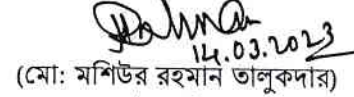 14.03.2023
(মো: মশিউর রহমান তালুকদার)